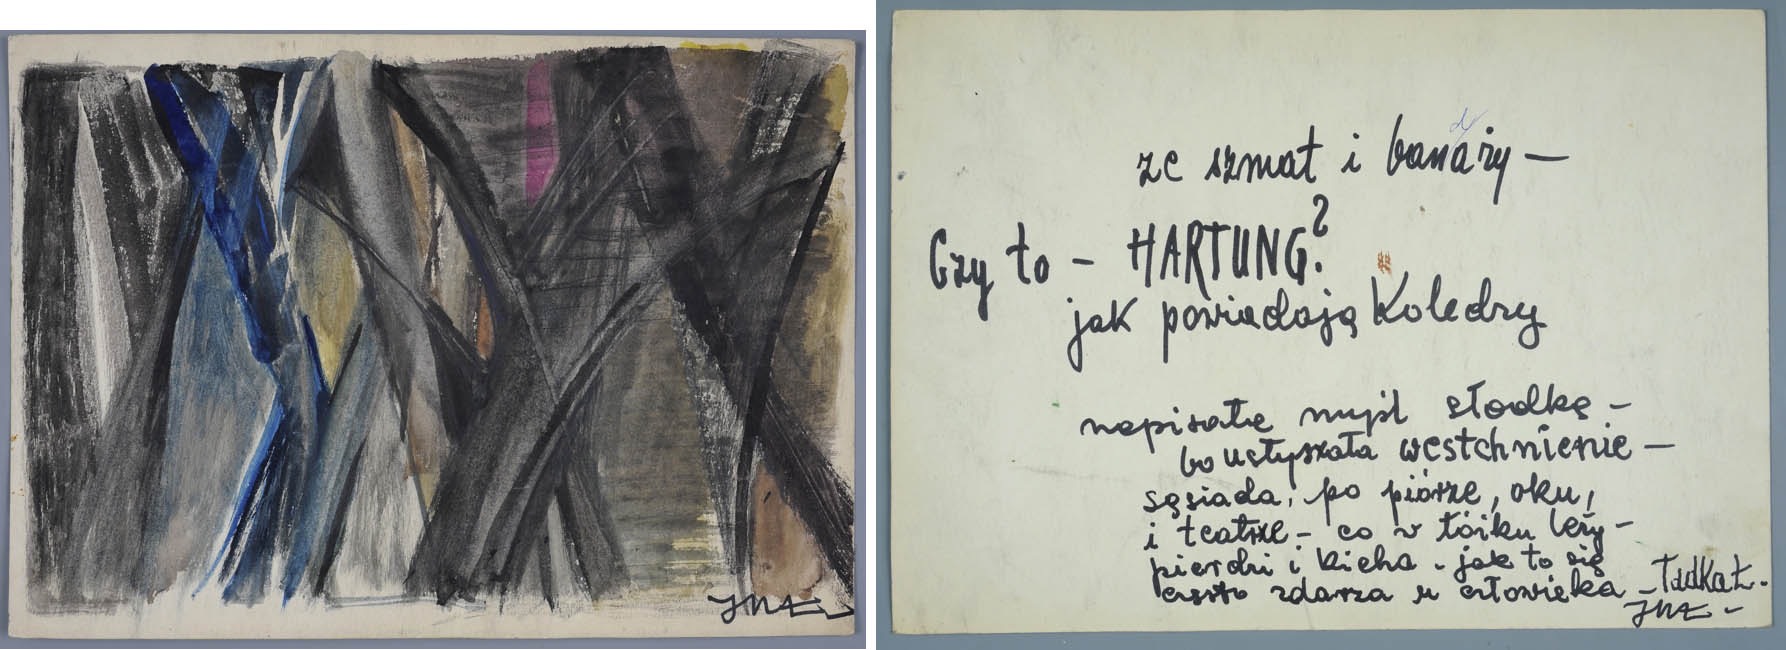 ze szmat i banaży –
d
Czy to – HARTUNG?
jak powiadają Koledzy
napisałe myśl słodkę –
bo usłyszała westchnienie –
sąsiada, po piórze, oku,
i teatrze – co w łóżku leży –
pierdzi i kicha. jak to się
często zdarza u człowieka – Tadka Ł.